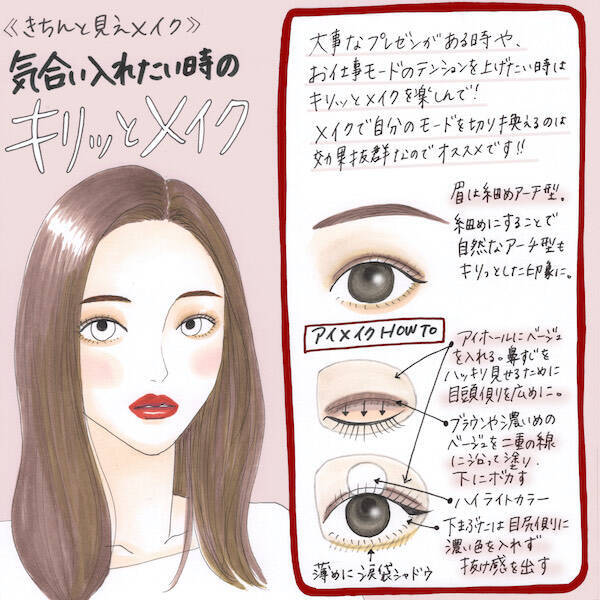 《きちんと見えメイク》
気合い入れたい時の
キリッとメイク
大事なプレゼンがある時や、
お仕事モードのテンションを上げたい時は
キリッとメイクを楽しんで!
メイクで自分のモードを切り換えるのは
効果抜群なのでオススメです!!
眉は細めアーチ型。
細めにすることで
自然なアーチ型も
キリっとした印象に。
アイメイクHOW TO
アイホールにベージュ
を入れる。鼻すじを
ハッキリ見せるために
目頭側りを広めに。
ブラウンや濃いめの
ベージュを二重の線
に沿って塗り、
下にボカす
ハイライトカラー
下まぶたは目尻側りに
濃い色を入れず
抜け感を出す
薄めに涙袋シャドウ